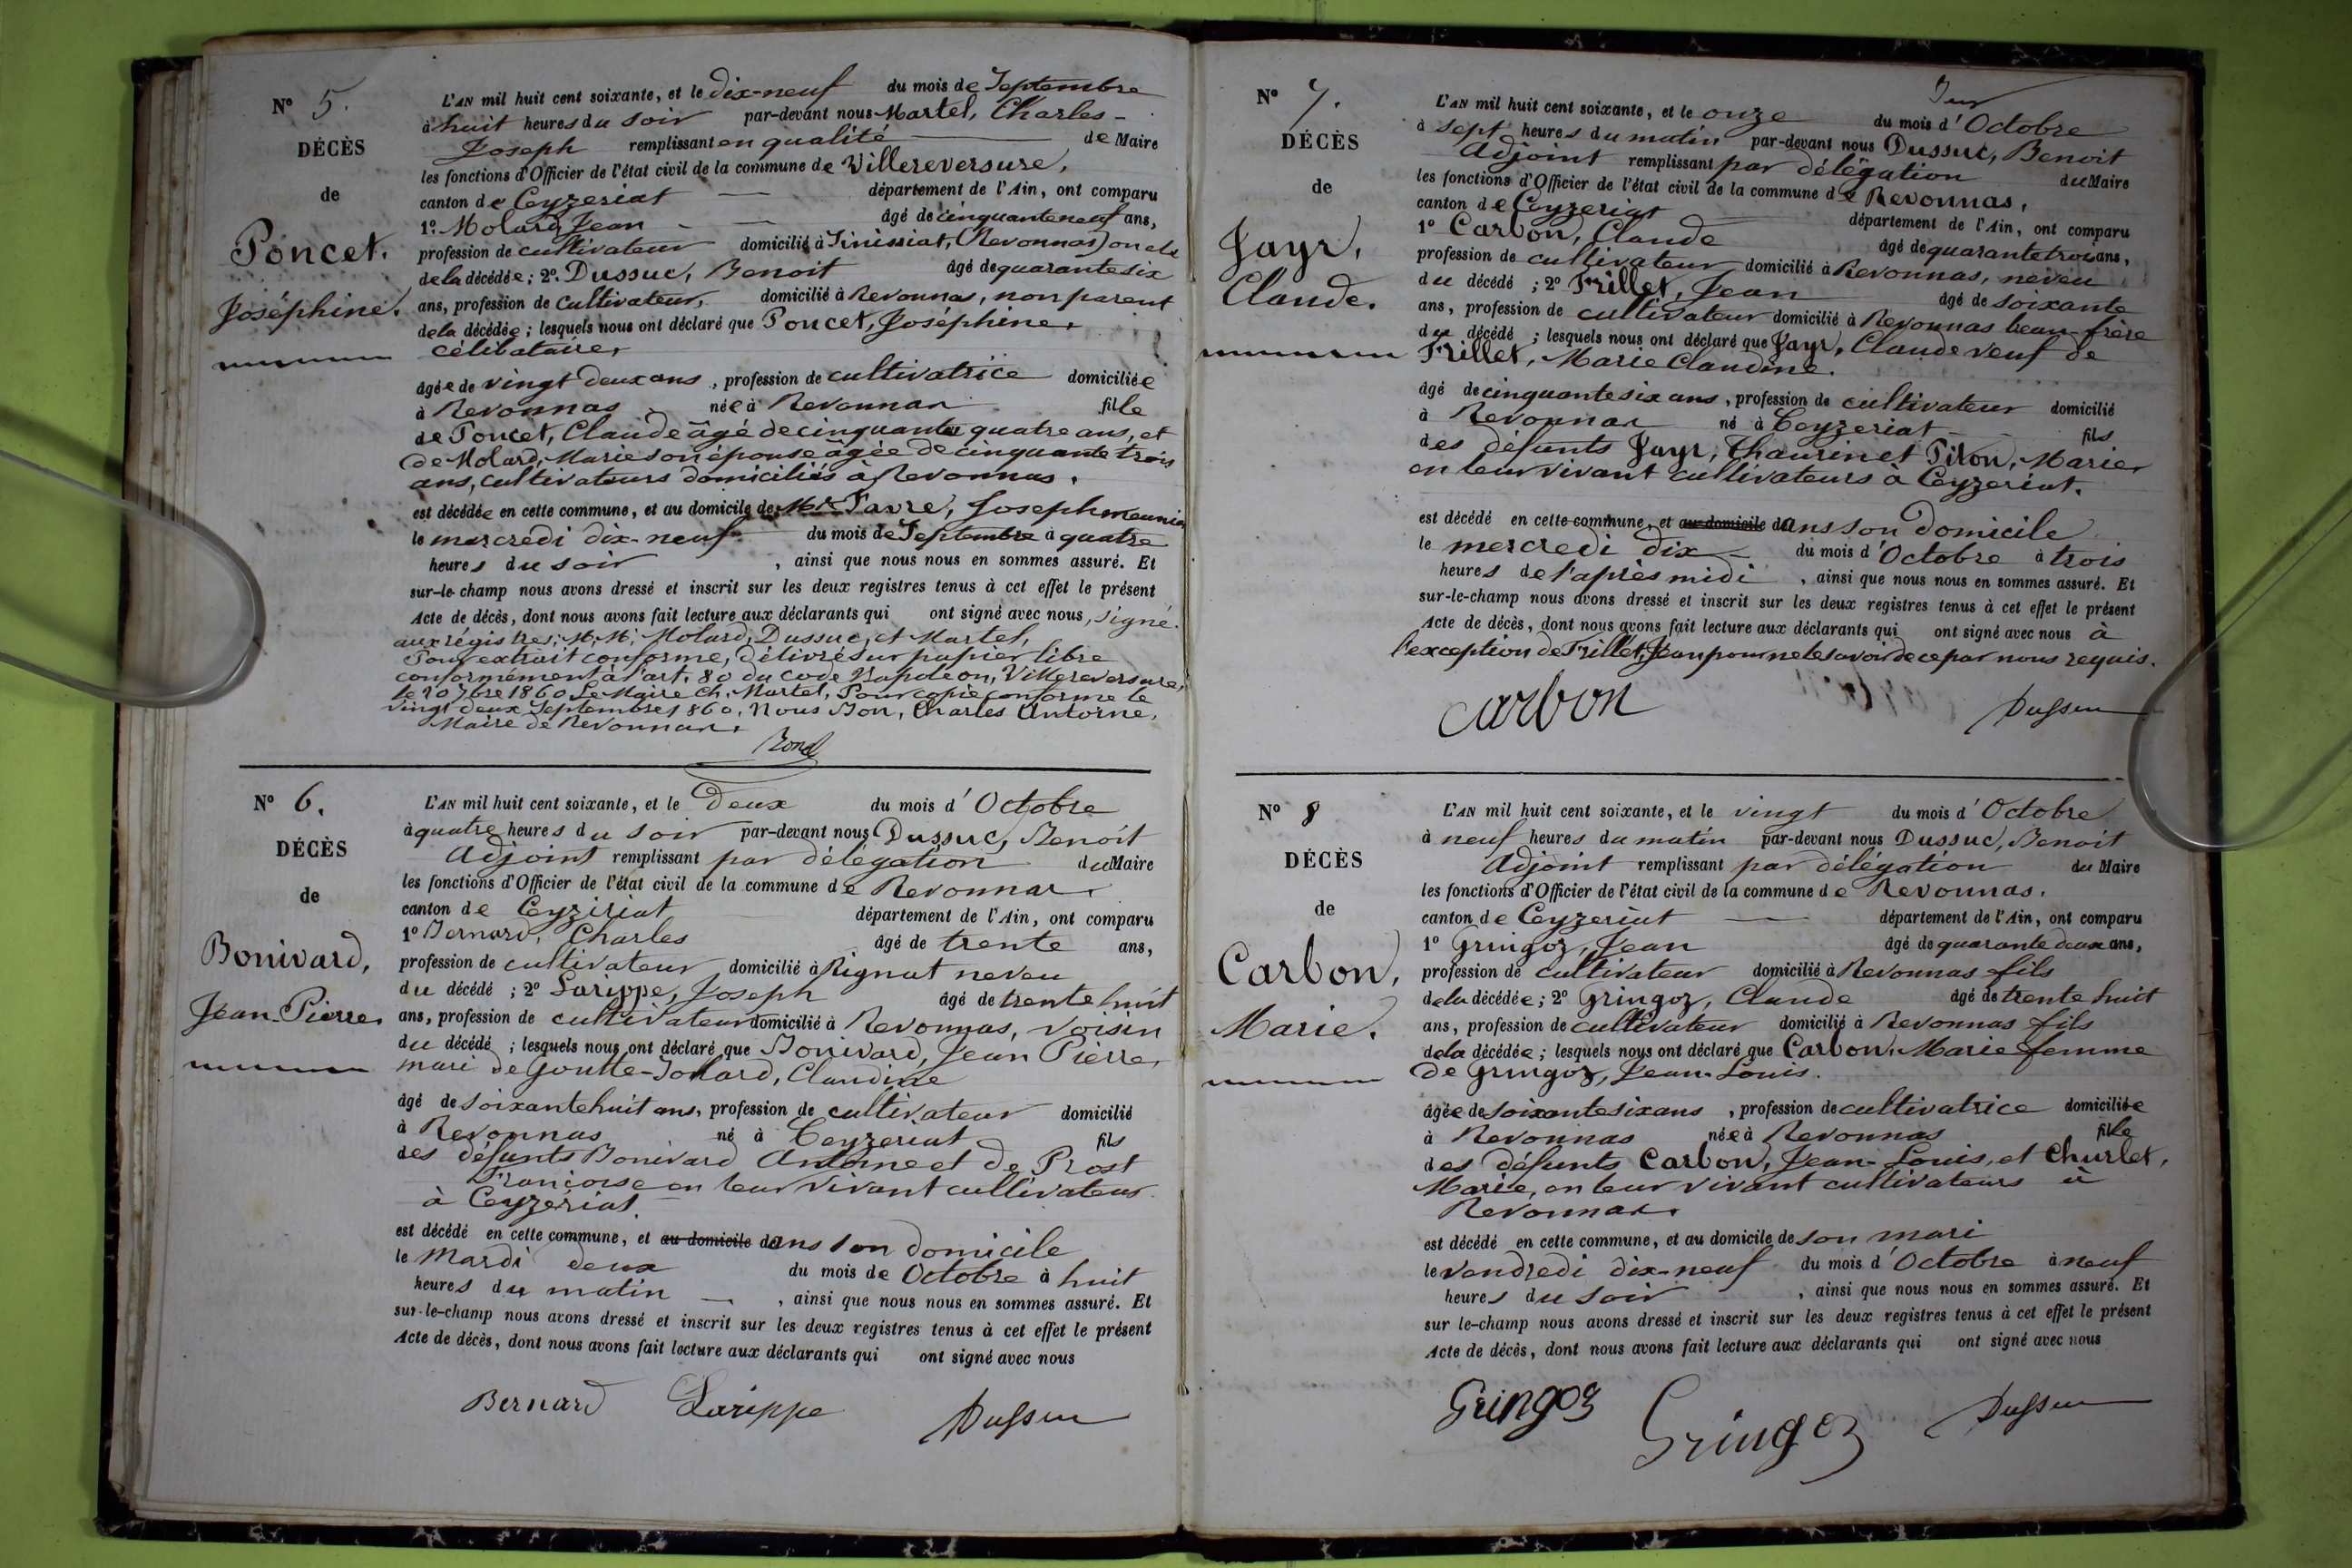 N° 5.
DÉCÈS
de
Poncet.
Joséphine.
L'AN mil huit cent soixante, et le dix-neuf du mois de Septembre
à huit heures du soir par-devant nous Martel, Charles-
Joseph remplissant en qualité de Maire
les fonctions d'Officier de l'état civil de la commune de Villereversure,
canton de Ceyzeriat département de l'Ain, ont comparu
1° Molard Jean âgé de cinquante neuf ans,
profession de cultivateur domicilié à (Revonnas) oncle
de la décédée; 2°. Dussuc, Benoit âgé de quarante six
ans, profession de cultivateur, domicilié à Revonnas, non parent
de la décédée; lesquels nous ont déclaré que Poncet, Joséphine,
célibataire,
âgée de vingt deux ans, profession de cultivatrice domiciliée
à Revonnas née à Revonnas fille
de Poncet, Claude âgé de cinquante quatre ans, et
de Molard, Marie son épouse âgée de cinquante trois
ans, cultivateurs domiciliés à Revonnas.
est décédée en cette commune, et au domicile de Mr Favre, Joseph meunier
le mercredi dix-neuf du mois de Septembre à quatre
heures du soir, ainsi que nous nous en sommes assuré. Et
sur-le-champ nous avons dressé et inscrit sur les deux registres tenus à cet effet le présent
Acte de décès, dont nous avons fait lecture aux déclarants qui ont signé avec nous, signé.
aux régistres; M.M. Molard, Dussuc, et Martel,
Pour extrait conforme, délivré sur papier libre
conformément à l'art. 80 du code Napoléon, Villereversure,
le 20 7bre 1860 Le Maire Ch. Martel, Pour copie conforme le
vingt deux Septembre 1860, Nous Charles Antoine,
Maire de Revonnas.
N° 6.
DÉCÈS
de
Bonivard,
Jean-Pierre
L'AN mil huit cent soixante, et le Deux du mois d'Octobre
à quatre heures du soir par-devant nous Dussuc, Benoit
Adjoint remplissant par délégation du Maire
les fonctions d'Officier de l'état civil de la commune de Revonnas
canton de Ceyziriat département de l'Ain, ont comparu
1° Bernard, Charles âgé de trente ans,
profession de cultivateur domicilié à Rignat neveu
du décédé; 2° Larippe, Joseph âgé de trente huit
ans, profession de cultivateur domicilié à Revonnas, voisin
du décédé; lesquels nous ont déclaré que Bonivard, Jean Pierre,
mari de Goutte-Jollard, Claudine
âgé de soixante huit ans, profession de cultivateur domicilié
à Revonnas né à Ceyzeriat fils
des défunts Bonivard Antoine et de Prost
Françoise en leur vivant cultivateurs
à Ceyzériat.
est décédé en cette commune, et au domicile dans son domicile
le Mardi deux du mois de Octobre à huit
heures du matin, ainsi que nous nous en sommes assuré. Et
sur-le-champ nous avons dressé et inscrit sur les deux registres tenus à cet effet le présent
Acte de décès, dont nous avons fait lecture aux déclarants qui ont signé avec nous
Bernard Larippe Dussuc
N° 7.
DÉCÈS
de
Jayr,
Claude.
L'AN mil huit cent soixante, et le onze du mois d'Octobre
à sept heures du matin par-devant nous Dussuc, Benoit
Adjoint remplissant par délégation du Maire
les fonctions d'Officier de l'état civil de la commune de Revonnas,
canton de Ceyzeriat département de l'Ain, ont comparu
1° Carbon, Claude âgé de quarante trois ans,
profession de cultivateur domicilié à Revonnas, neveu
du décédé; 2° Frillet, Jean âgé de soixante
ans, profession de cultivateur domicilié à Revonnas beau-frère
du décédé; lesquels nous ont déclaré que Jayr, Claude veuf de
Frillet, Marie Claudine.
âgé de cinquante six ans, profession de cultivateur domicilié
à Revonnas né à Ceyzeriat fils
des défunts Jayr, Thaurin et Piron, Marie
en leur vivant cultivateurs à Ceyzeriat.
est décédé en cette commune, et au domicile dans son domicile
le mercredi dix du mois d'Octobre à trois
heures de l'après midi, ainsi que nous nous en sommes assuré. Et
sur-le-champ nous avons dressé et inscrit sur les deux registres tenus à cet effet le présent
Acte de décès, dont nous avons fait lecture aux déclarants qui ont signé avec nous à
l'exception de Frillet, Jean pour ne le savoir de ce par nous requis.
Carbon Dussuc
N° 8
DÉCÈS
de
Carbon,
Marie.
L'AN mil huit cent soixante, et le vingt du mois d'Octobre
à neuf heures du matin par-devant nous Dussuc, Benoit
Adjoint remplissant par délégation du Maire
les fonctions d'Officier de l'état civil de la commune de Revonnas.
canton de Ceyzeriat département de l'Ain, ont comparu
1° Gringoz, Jean âgé de quarante deux ans,
profession de cultivateur domicilié à Revonnas fils
de la décédée; 2° Gringoz, Claude âgé de trente huit
ans, profession de cultivateur domicilié à Revonnas fils
de la décédée; lesquels nous ont déclaré que Carbon, Marie femme
de Gringoz, Jean-Louis.
âgée de soixante six ans, profession de cultivatrice domiciliée
à Revonnas née à Revonnas fille
des défunts Carbon, Jean-Louis, et Churlet,
Marie, en leur vivant cultivateurs à
Revonnas.
est décédé en cette commune, et au domicile de son mari
le vendredi dix-neuf du mois d'Octobre à neuf
heures du soir, ainsi que nous nous en sommes assuré. Et
sur le-champ nous avons dressé et inscrit sur les deux registres tenus à cet effet le présent
Acte de décès, dont nous avons fait lecture aux déclarants qui ont signé avec nous
Gringoz Gringoz Dussuc